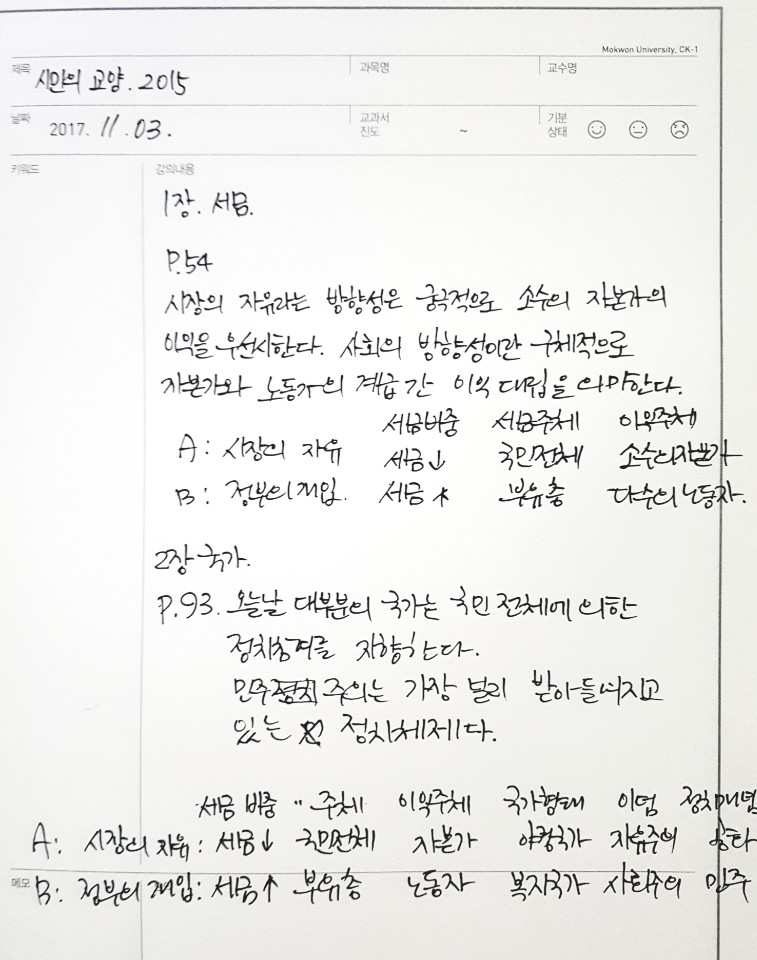 Mokwon University, CK-1
제목 시민의 교양. 2015 과목명 교수명
날짜 2017. 11. 03. 교과서 진도 ~ 기분 상태
키워드 강의내용
1장. 세금.
P.54
시장의 자유라는 방향성은 궁극적으로 소수의 자본가의
이익을 우선시한다. 사회의 방향성이란 구체적으로
자본가와 노동자의 계급 간 이익 대립을 의미한다.
세금비중 세금주체 이익주체
A: 시장의 자유 세금↓ 국민전체 소수의 자본가
B: 정부의 개입. 세금↑ 부유층 다수의 노동자.
2장 국가.
P.93. 오늘날 대부분의 국가는 국민 전체에 의한
정치참여를 지향한다.
민주주의는 가장 널리 받아들여지고
있는 정치체제이다.
세금 비중 " 주체 이익주체 국가형태 이념
A: 시장의 자유: 세금↓ 국민전체 자본가 야경국가 자유주의
메모 B: 정부의 개입: 세금↑ 부유층 노동자 복지국가 사회주의 민주